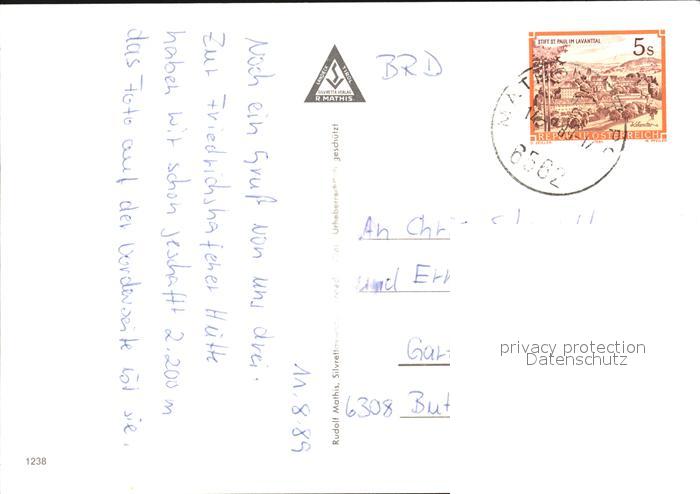 Noch ein Gruß von uns drei.
Zur Friedrichshafener Hütte
haben wir schon geschafft 2.200 m
das Foto auf der Vorderseite ist sie.
11.8.89
BRD
An Chri
und Ern
Gar
6308 But
STIFT ST. PAUL IM LAVANTTAL
5s
REPUBLIK ÖSTERREICH
MAT
6562
SILVRETTA VERLAG
R MATHIS
Rudolf Mathis, Silvretta
Urheberrechtlich geschützt
privacy protection
Datenschutz
1238